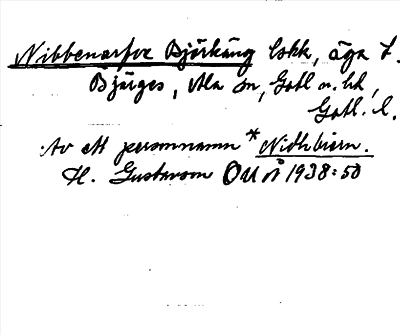 Nibbenarfve Björkäng lskk, äga t.
Bjärges, Ala sn, Gotl n. hd,
Gotl. l.
Av ett personnamn *Nidhbiern.
H. Gustavson OUÅ 1938:50